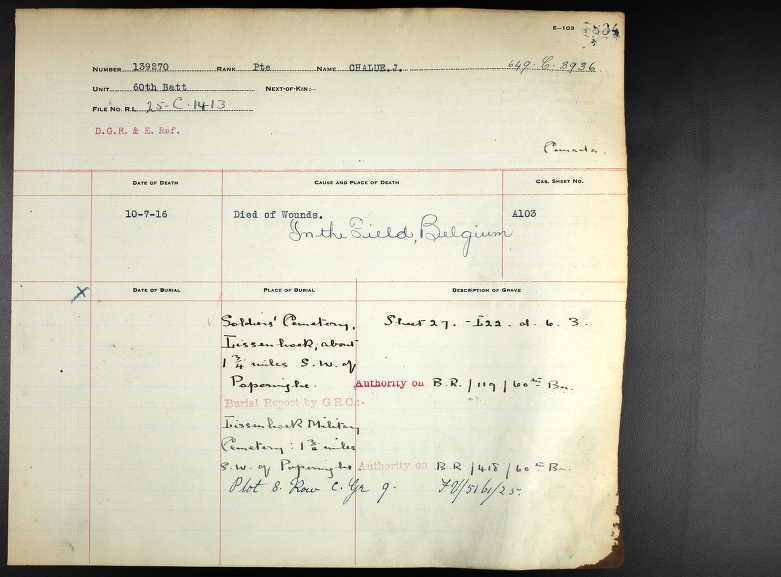 E-103
NUMBER 139270 RANK Pte NAME CHALUE.J. 649-C-8936
UNIT 60th Batt NEXT-OF-KIN:-
FILE NO. R.L. 25-C-1413
D.G.R. & E. Ref.
Canada.
DATE OF DEATH CAUSE AND PLACE OF DEATH CAS. SHEET NO.
10-7-16 Died of Wounds. A103
In the Field, Belgium
X DATE OF BURIAL PLACE OF BURIAL DESCRIPTION OF GRAVE
Soldiers' Cemetery, Sheet 27. - I22. d. 6. 3.
Lissenhoek, about
1 3/4 miles S.W. of
Poperinghe. Authority on B.R./119/60th Bn.
Burial Report by G.R.C.:-
Lissenhoek Military
Cemetery: 1 3/4 miles
S.W. of Poperinghe Authority on B.R/418/60th Bn.
Plot 8. Row C. Gr 9.